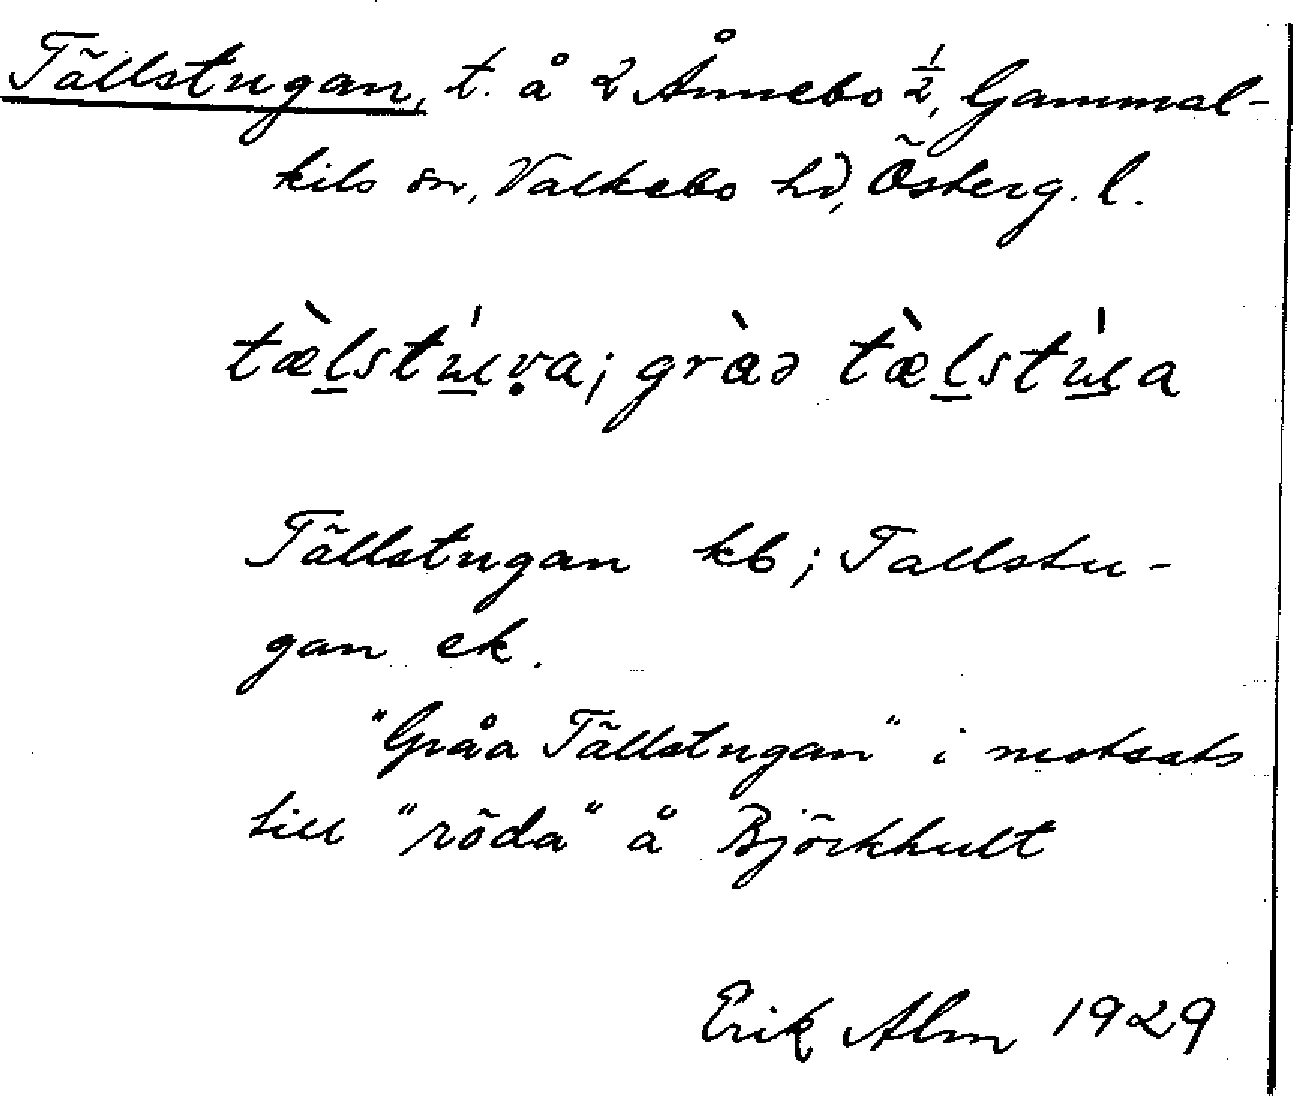 Tällstugan, t. å 2 Ånnebo 1/2, Gammal-
kils sn, Valkebo hd, Österg. l.
tæ̀l̲stɯ̲́ṿa; gràə tæ̀l̲stɯ̲́a
Tällstugan kb; Tallstu-
gan ek.
"Gråa Tällstugan" i motsats
till "röda" å Björkhult
Erik Alm 1929